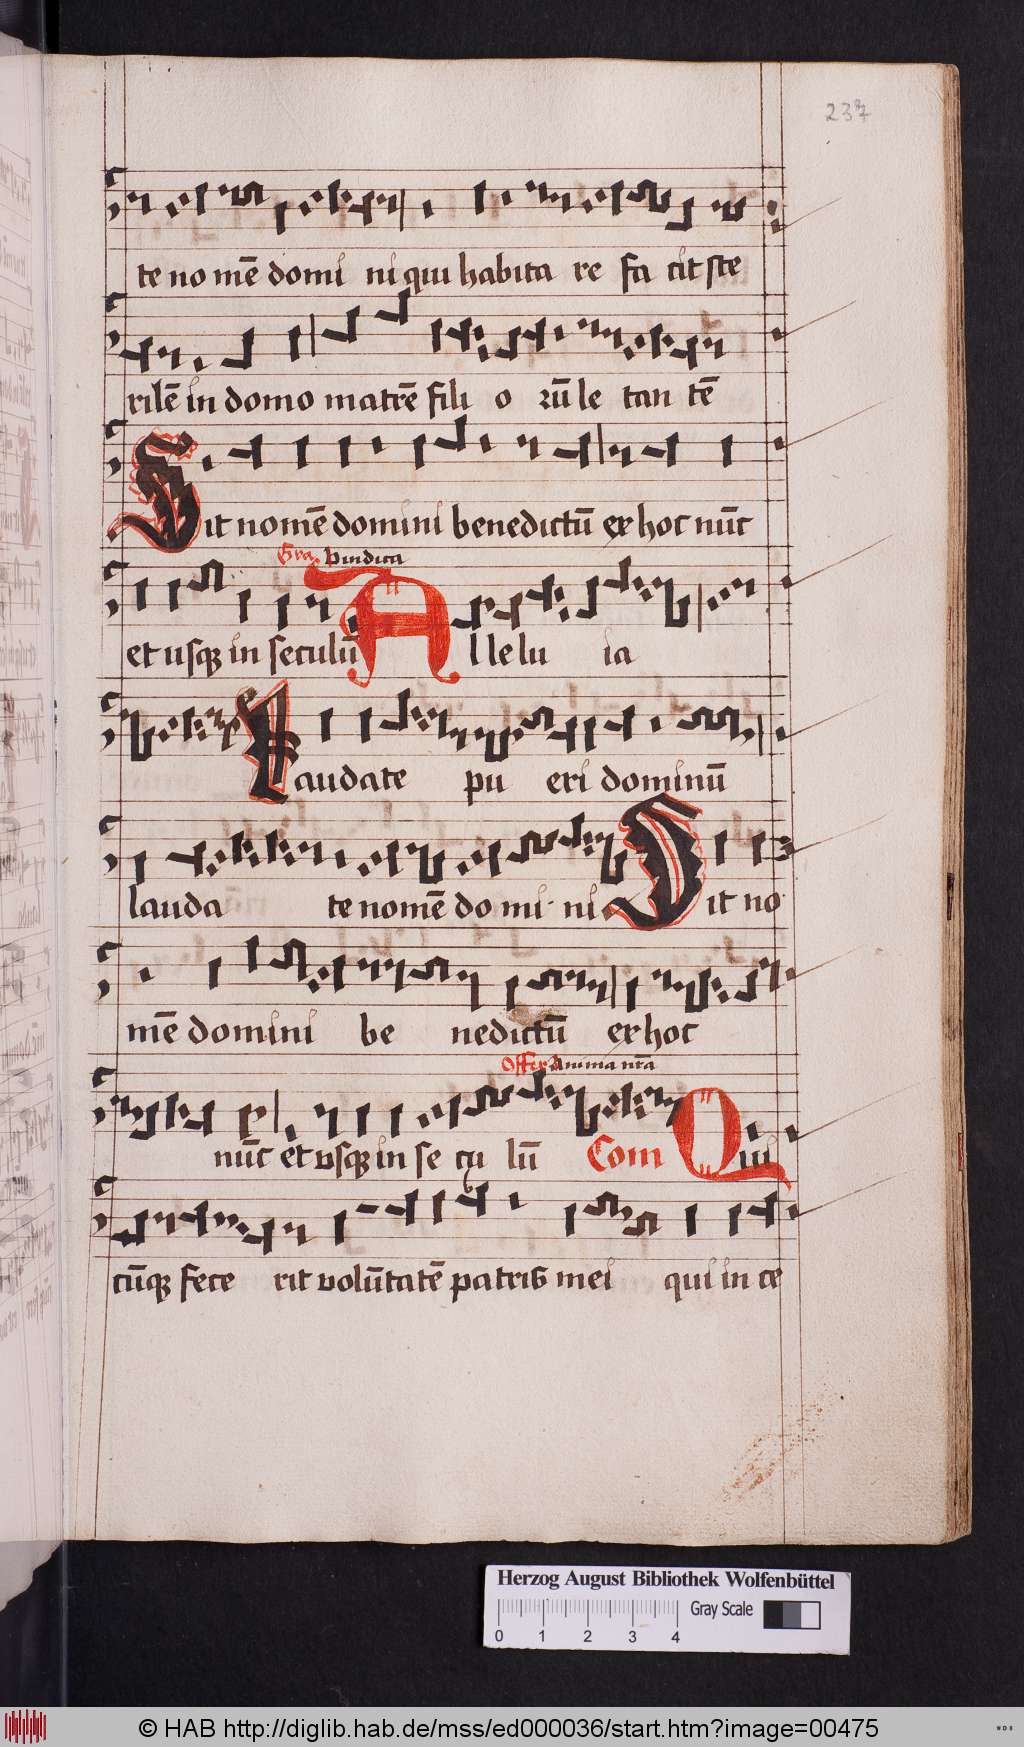 237
te no mē domi ni qui habita re fa cit ste
rilē in domo matrē fili o rū le tan tē
Sit nomē domini benedictū ex hoc nūc
Gra Vindica
et usq in seculū Al le lu ia
Laudate pu eri dominū
lauda te nomē do mi ni Sit no
mē domini be nedictū ex hoc
Offer Anima nrā
nūc et vsq in se cu lū Com Qui
cūq fece rit volūtatē patris mei qui in ce
Herzog August Bibliothek Wolfenbüttel
Gray Scale
0 1 2 3 4
© HAB http://diglib.hab.de/mss/ed000036/start.htm?image=00475